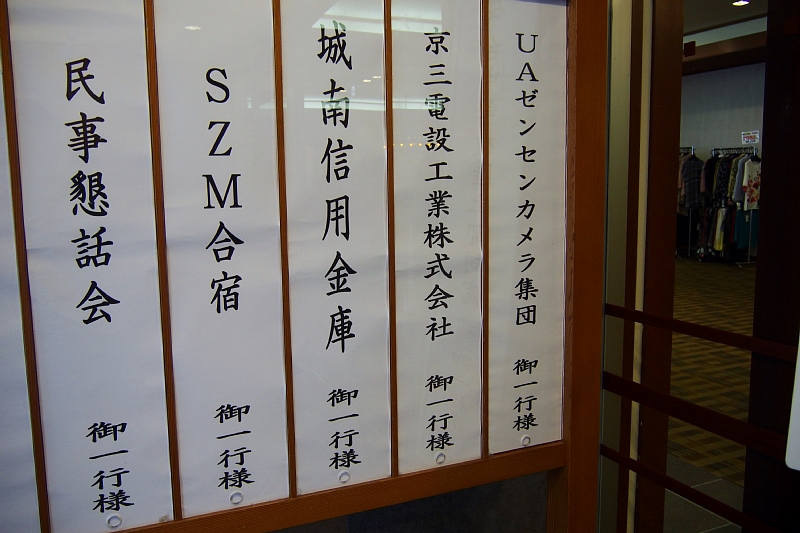 UAゼンセンカメラ集団 御一行様
京三電設工業株式会社 御一行様
城南信用金庫 御一行様
SZM合宿 御一行様
民事懇話会 御一行様